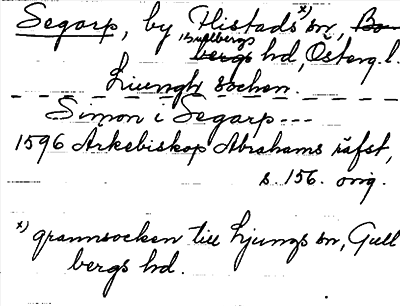 Segarp, by Flistads x) sn, Bo
Gullbergs
bergs hd, Österg. l.
Liungh sochen.
Simon i Segarp---
1596 Arkebiskop Abrahams räfst,
s. 156. orig.
x) grannsocken till Ljungs sn, Gull
bergs hd.